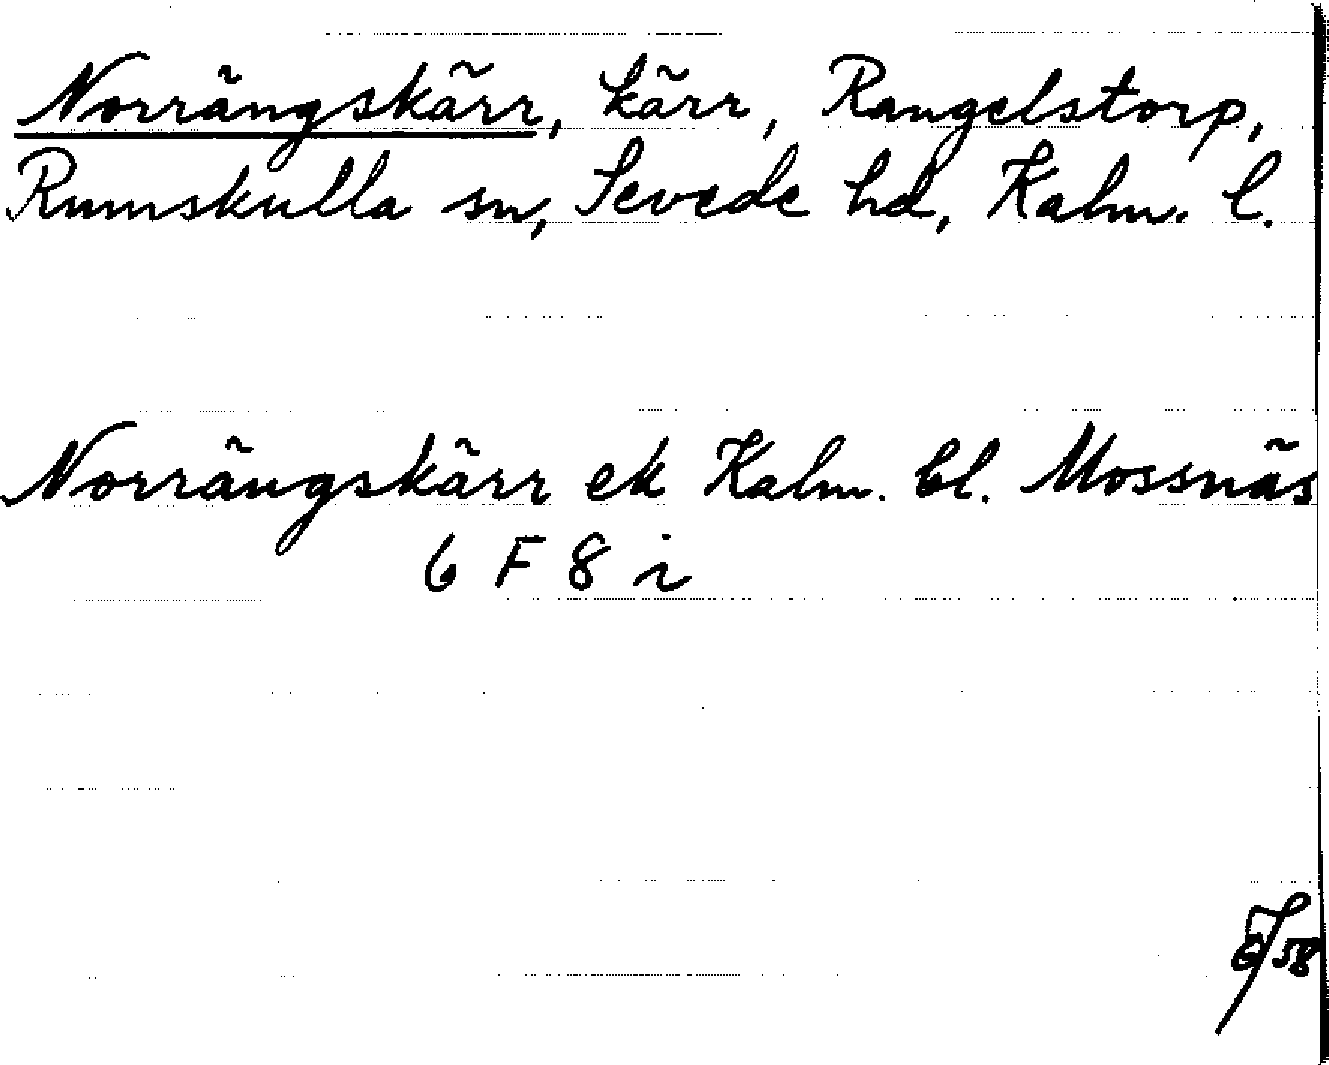 Norrängskärr, kärr, Rangelstorp,
Rumskulla sn, Sevede hd, Kalm. l.
Norrängskärr ek Kalm. bl. Mossnäs
6 F 8 i